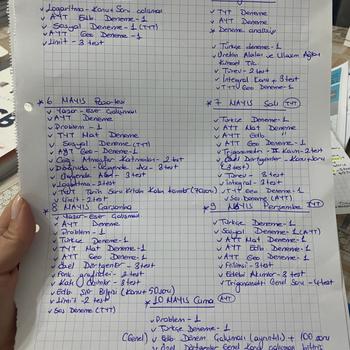 ✓ Logaritma - Konu+Soru çalışması
✓ AYT Edb. Deneme - 1
✓ Sosyal Deneme - 1 (TYT)
✓ AYT Geo Deneme - 1
✓ Limit - 3 test
✓ TYT Deneme
✓ AYT Deneme
✓ Deneme analizi
✓ Türkçe deneme - 1
✓ Türev - 2 test
✓ İntegral Konu + 3 test
✓ TYT Geo Deneme - 1
* 6 MAYIS Pazartesi
✓ Yazar-Eser Çalışması
✓ AYT Deneme
✓ Problem - 1
✓ TYT Mat Deneme
✓ Sosyal Deneme (TYT)
✓ AYT Geo Deneme - 1
✓ Coğ. Atmosfer Katmanları - 2 test
✓ Doğruda Üçgende Açı - 3 test
✓ Üçgende Alan - 3 test
✓ Logaritma - 2 test
✓ TYT Tarih Soru Kitabı Kalan konular (70 soru)
✓ Limit - 2 test
* 7 MAYIS Salı (TYT)
✓ Türkçe Deneme - 1
✓ AYT Mat Deneme
✓ AYT Edb - 1
✓ AYT Geo Deneme - 1
✓ Trigonometri - II Konu - 2 test
✓ Özel Dörtgenler - Konu+Soru
(3 test)
✓ Türev - 3 test
✓ İntegral - 3 test
✓ TYT Geo Deneme - 1
✓ Ses Deneme (AYT)
* 8 MAYIS Çarşamba
✓ Yazar-Eser Çalışması
✓ AYT Deneme
✓ Problem - 1
✓ Türkçe Deneme - 1
✓ TYT Mat Deneme - 1
✓ AYT Geo Deneme - 1
✓ Özel Dörtgenler - 3 test
✓ Fonk. grafikleri - 2 test
✓ Katı Cisimler - 3 test
✓ Edb Şiir Bilgisi (Konu+50 soru)
✓ Limit - 2 test
✓ Ses Deneme (TYT)
* 9 MAYIS Perşembe (TYT)
✓ Türkçe Deneme - 1
✓ Sosyal Deneme - 1 (AYT)
✓ AYT Mat Deneme - 1
✓ AYT Edb Deneme - 1
✓ AYT Geo Deneme - 1
✓ Edebi Akımlar - 3 test
✓ Trigonometri Genel Soru - 4 test
* 10 MAYIS Cuma (AYT)
✓ Problem - 1
✓ Türkçe Deneme - 1
(Genel) ✓ Edb Dönem Çalışması (ayrıntılı) + 100 soru
✓ Özel Dörtgenler Genel konu çalışması bitirici